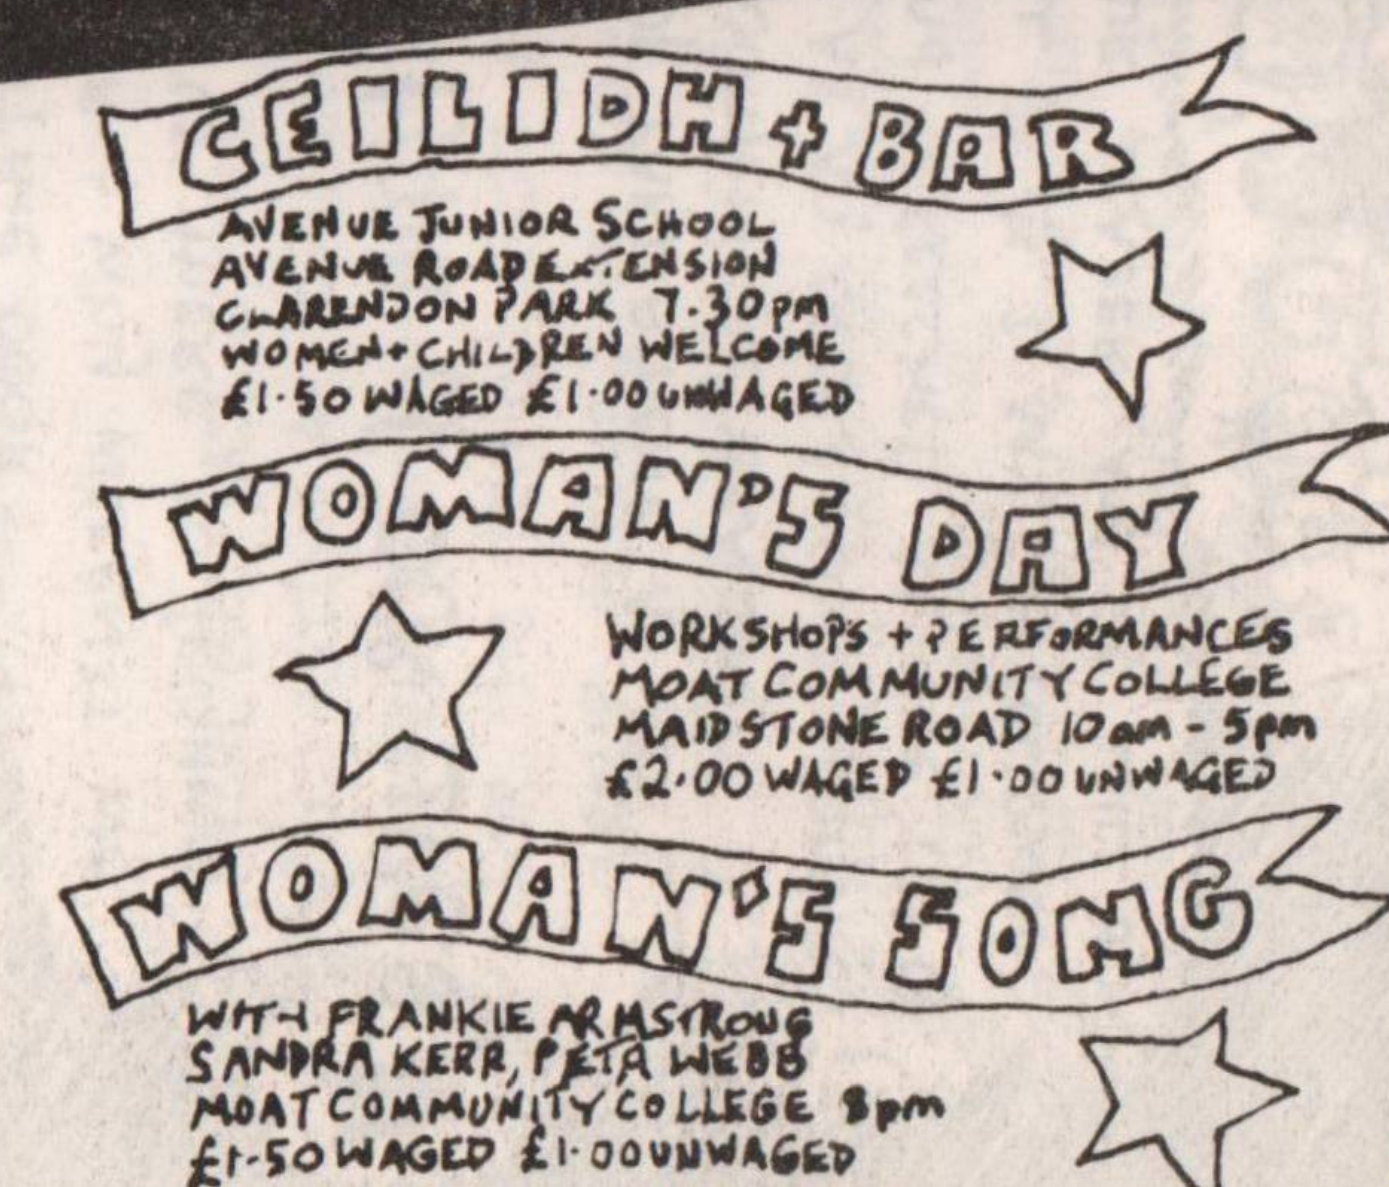 CEILIDH + BAR
AVENUE JUNIOR SCHOOL
AVENUE ROAD EXTENSION
CLARENDON PARK 7.30pm
WOMEN + CHILDREN WELCOME
£1.50 WAGED £1.00 UNWAGED
WOMAN'S DAY
WORKSHOPS + PERFORMANCES
MOAT COMMUNITY COLLEGE
MAIDSTONE ROAD 10am - 5pm
£2.00 WAGED £1.00 UNWAGED
WOMAN'S SONG
WITH FRANKIE ARMSTRONG
SANDRA KERR, PETA WEBB
MOAT COMMUNITY COLLEGE 8pm
£1.50 WAGED £1.00 UNWAGED